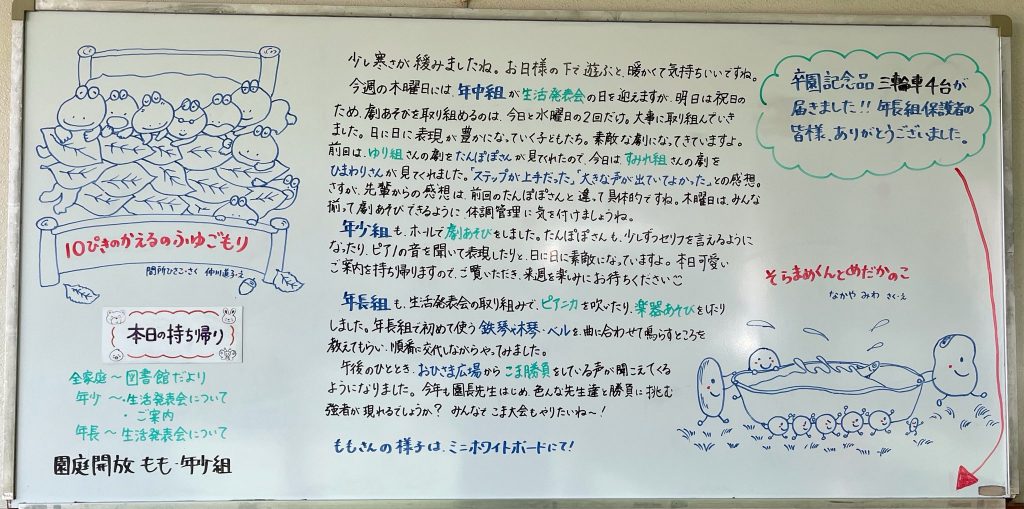 10ぴきのかえるのふゆごもり
間所ひさこ・さく 仲川道子・え
本日の持ち帰り
全家庭〜図書館だより
年少〜・生活発表会について
・ご案内
年長〜生活発表会について
園庭開放 もも・年少組
少し寒さが緩みましたね。お日様の下で遊ぶと、暖かくて気持ちいいですね。
今週の木曜日には、年中組が生活発表会の日を迎えますが、明日は祝日の
ため、劇あそびを取り組めるのは、今日と水曜日の2回だけ。大事に取り組んでいき
ました。日に日に表現が豊かになっていく子どもたち。素敵な劇になってきていますよ。
前回は、ゆり組さんの劇をたんぽぽさんが見てくれたので、今日はすみれ組さんの劇を
ひまわりさんが見てくれました。「ステップが上手だった」「大きな声が出ていてよかった」との感想。
さすが、先輩からの感想は、前回のたんぽぽさんと違って具体的ですね。木曜日は、みんな
揃って劇あそびできるように、体調管理に気を付けましょうね。
年少組も、ホールで劇あそびをしました。たんぽぽさんも、少しずつセリフを言えるように
なったり、ピアノの音を聞いて表現したりと、日に日に素敵になっていますよ。本日可愛い
ご案内を持ち帰りますので、ご覧いただき、来週を楽しみにお待ちください
年長組も、生活発表会の取り組みで、ピアニカを吹いたり、楽器あそびをしたり
しました。年長組で初めて使う鉄琴や木琴・ベルを、曲に合わせて鳴らすところを
教えてもらい、順番に交代しながらやってみました。
午後のひととき、おひさま広場からこま勝負をしている声が聞こえてくる
ようになりました。今年も園長先生はじめ、色んな先生達と勝負に挑む
強者が現れるでしょうか？みんなでこま大会もやりたいね〜！
ももさんの様子は、ミニホワイトボードにて！
卒園記念品 三輪車4台が
届きました!! 年長組保護者の
皆様、ありがとうございました。
そらまめくんとめだかのこ
なかや みわ さく・え